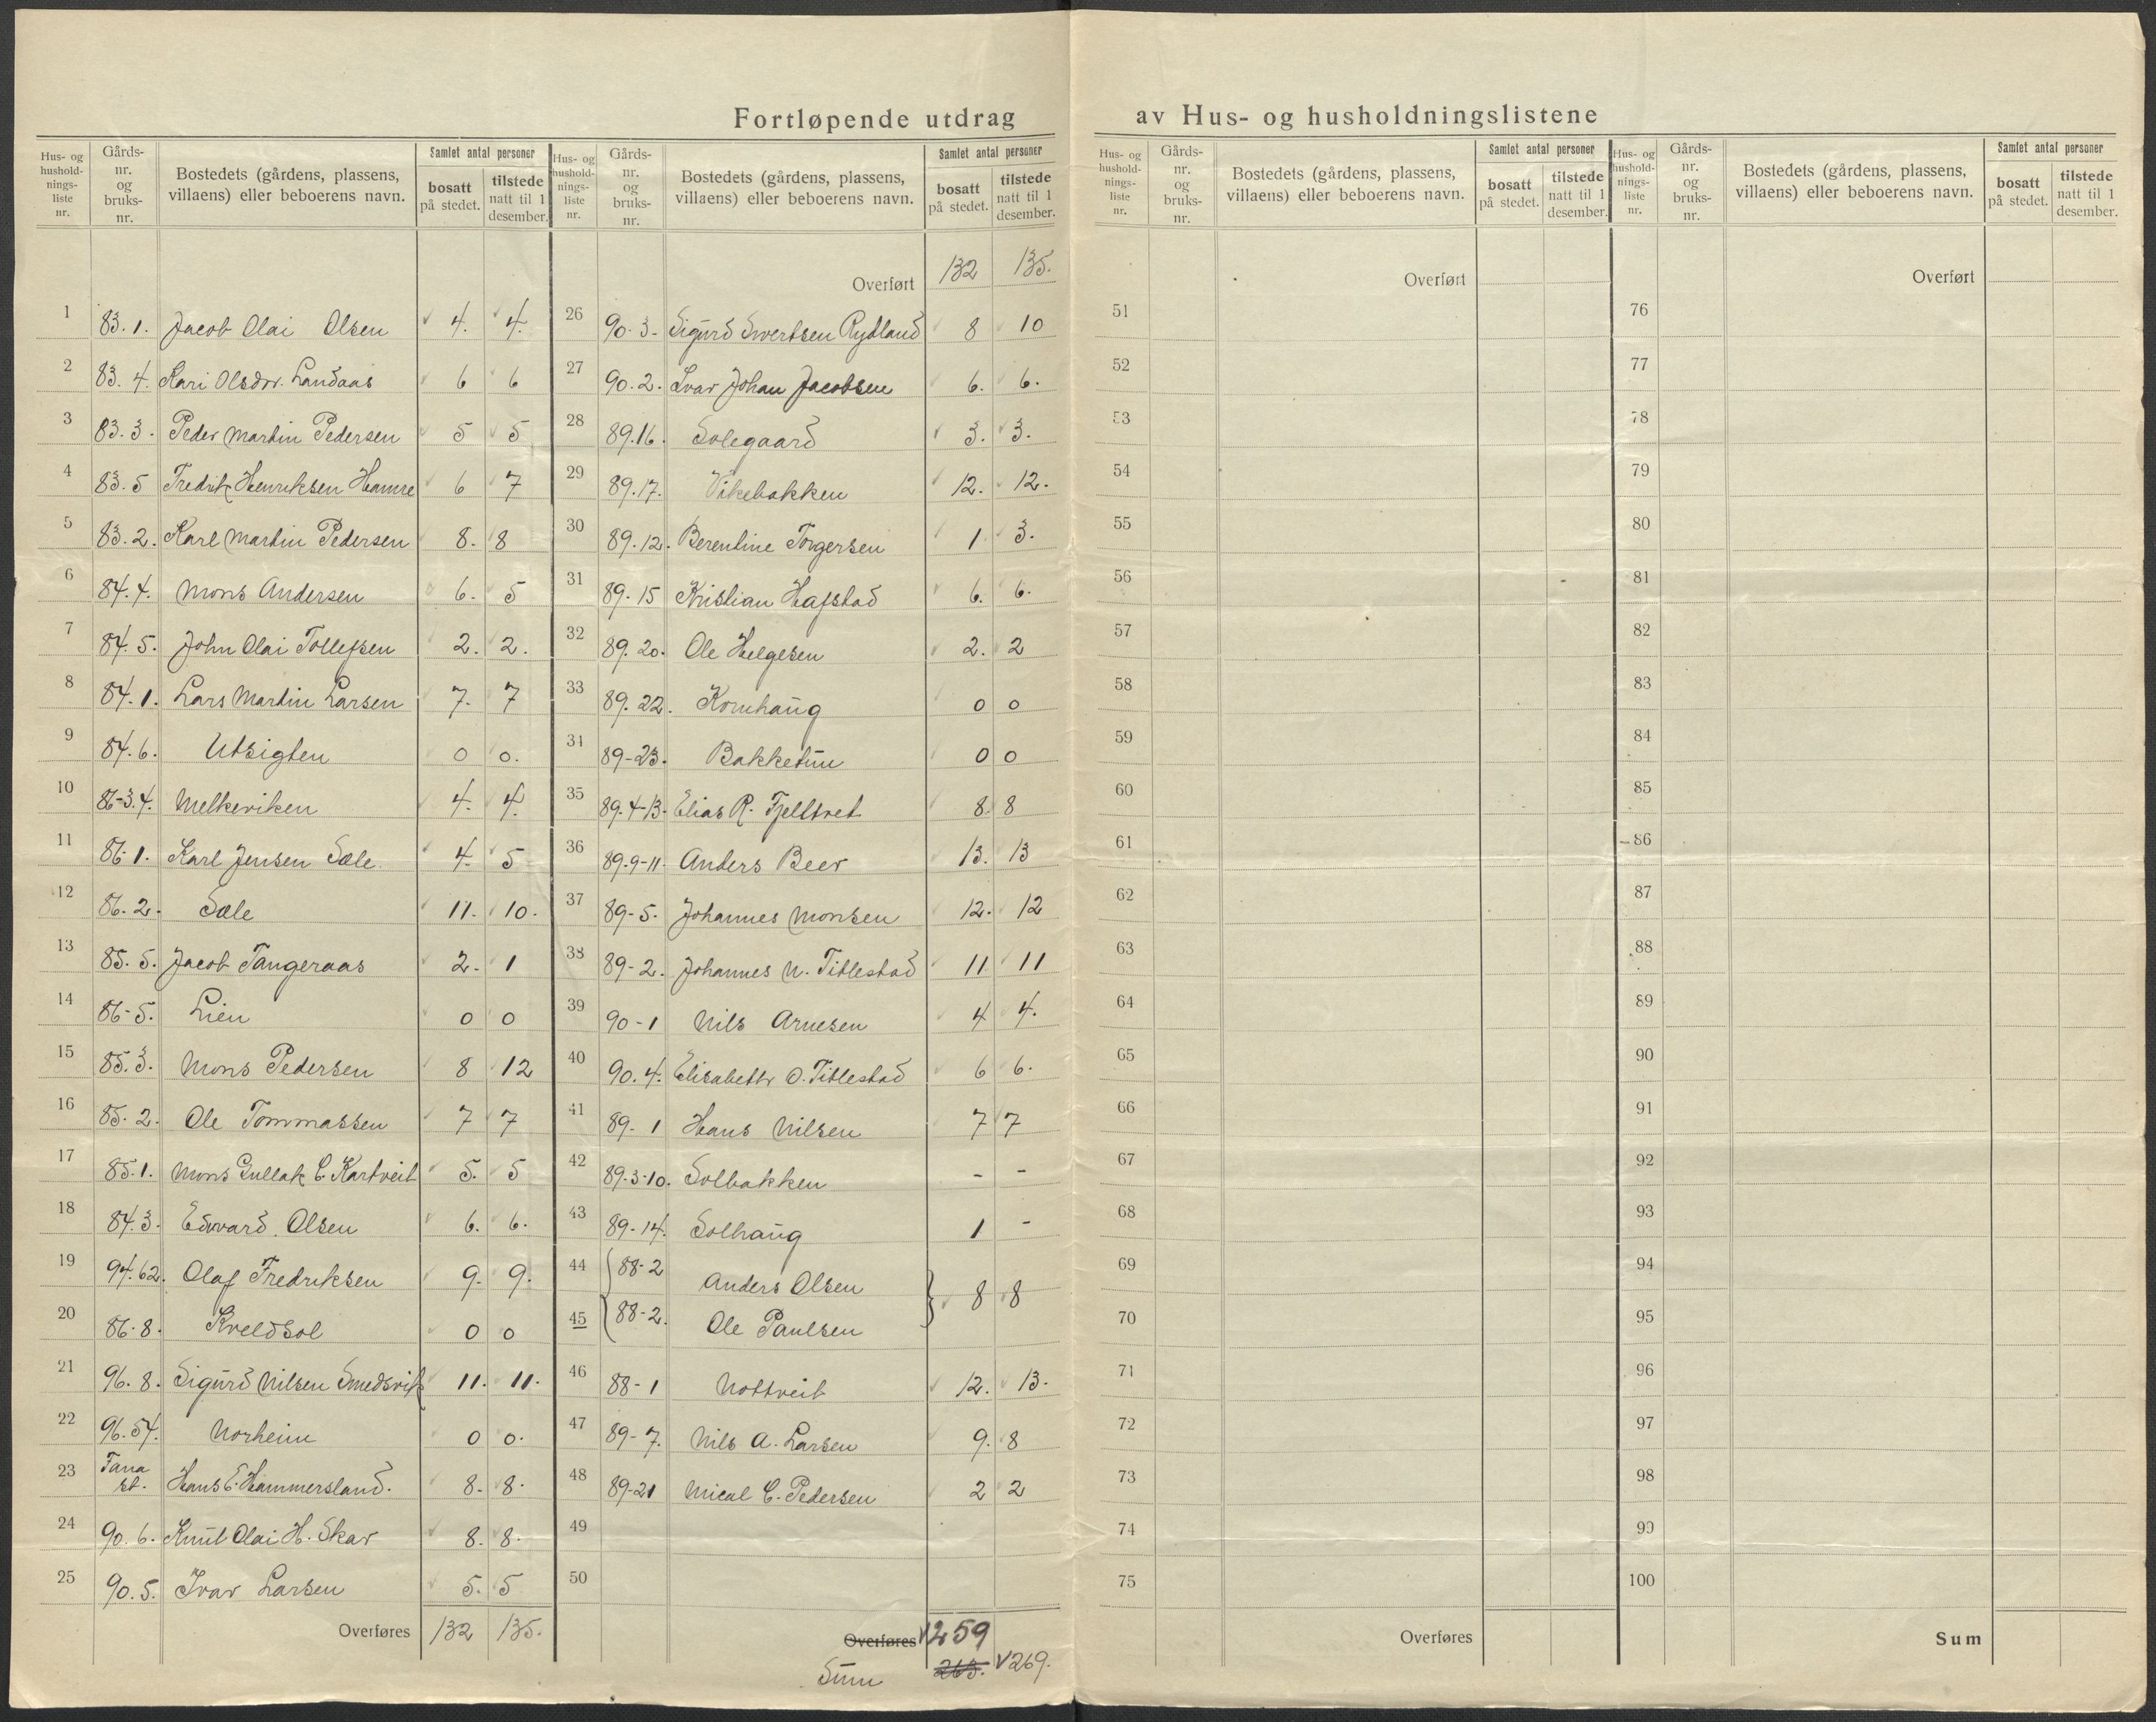 Fortløpende utdrag av Hus- og husholdningslistene
Hus- og hushold-nings-liste nr. Gårds-nr. og bruks-nr. Bostedets (gårdens, plassens, villaens) eller beboerens navn. Samlet antal personer bosatt på stedet. tilstede natt til 1 desember.
1 83.1. Jacob Olai Olsen 4. 4.
2 83.4. Kari Olsdtr. Landaas 6 6
3 83.3. Peder Martin Pedersen 5 5
4 83.5 Fredrik Henriksen Hamre 6 7
5 83.2. Karl Martin Pedersen 8. 8
6 84.4. Mons Andersen 6. 5
7 84.5. John Olai Tollefsen 2. 2.
8 84.1. Lars Martin Larsen 7. 7
9 84.6. Utsigten 0 0.
10 86-3.4. Melkeviken 4. 4.
11 86-1. Karl Jensen Sæle. 4. 5
12 86.2. Sæle 11. 10.
13 85.5. Jacob Tangeraas 2. 1
14 86-5. Lien 0 0
15 85.3. Mons Pedersen 8 12
16 85.2. Ole Tommassen 7 7
17 85.1. Mons Gullak C. Kartveit 5. 5
18 84.3. Edvard Olsen 6. 6.
19 94.62. Olaf Fredriksen 9. 9.
20 86-8. Kveldsol 0 0
21 96.8. Sigurd Nilsen Smedsvik 11. 11.
22 96.54. Norheim 0 0.
23 Fana st. Hans E. Hammersland. 8. 8.
24 90.6. Knut Olai H. Skar 8. 8.
25 90.5. Ivar Larsen 5. 5
Overføres 132 135.
Hus- og hushold-nings-liste nr. Gårds-nr. og bruks-nr. Bostedets (gårdens, plassens, villaens) eller beboerens navn. Samlet antal personer bosatt på stedet. tilstede natt til 1 desember.
Overført 132 135.
26 90.3. Sigurd Sivertsen Rydland 8 10
27 90.2. Ivar Johan Jacobsen 6. 6.
28 89.16. Solegaard 3. 3.
29 89.17. Vikebakken 12. 12.
30 89.12. Berentine Torgersen 1 3.
31 89.15 Kristian Hafstad 6. 6.
32 89.20. Ole Helgesen 2. 2
33 89.22. Kornhaug 0 0
34 89-23. Bakketun 0 0
35 89.4-13. Elias R. Fjelltvet 8. 8
36 89.9-11. Anders Beer 13. 13
37 89-5. Johannes Monsen 12. 12
38 89-2. Johannes N. Titlestad 11 11
39 90-1 Nils Arnesen 4 4.
40 90.4. Elisabeth O. Titlestad 6 6.
41 89-1 Hans Nilsen 7 7
42 89.3-10. Solbakken - -
43 89-14. Solhaug 1 -
44 88-2 Anders Olsen 8 8
45 88-2. Ole Paulsen
46 88-1 Nottveit 12. 13.
47 89-7. Nils A. Larsen 9. 8
48 89-21 Mical C. Pedersen 2 2
49
50
Overføres 259
Sum 263. 269.
Hus- og hushold-nings-liste nr. Gårds-nr. og bruks-nr. Bostedets (gårdens, plassens, villaens) eller beboerens navn. Samlet antal personer bosatt på stedet. tilstede natt til 1 desember.
Overført
51
52
53
54
55
56
57
58
59
60
61
62
63
64
65
66
67
68
69
70
71
72
73
74
75
Overføres
Hus- og hushold-nings-liste nr. Gårds-nr. og bruks-nr. Bostedets (gårdens, plassens, villaens) eller beboerens navn. Samlet antal personer bosatt på stedet. tilstede natt til 1 desember.
Overført
76
77
78
79
80
81
82
83
84
85
86
87
88
89
90
91
92
93
94
95
96
97
98
99
100
Sum